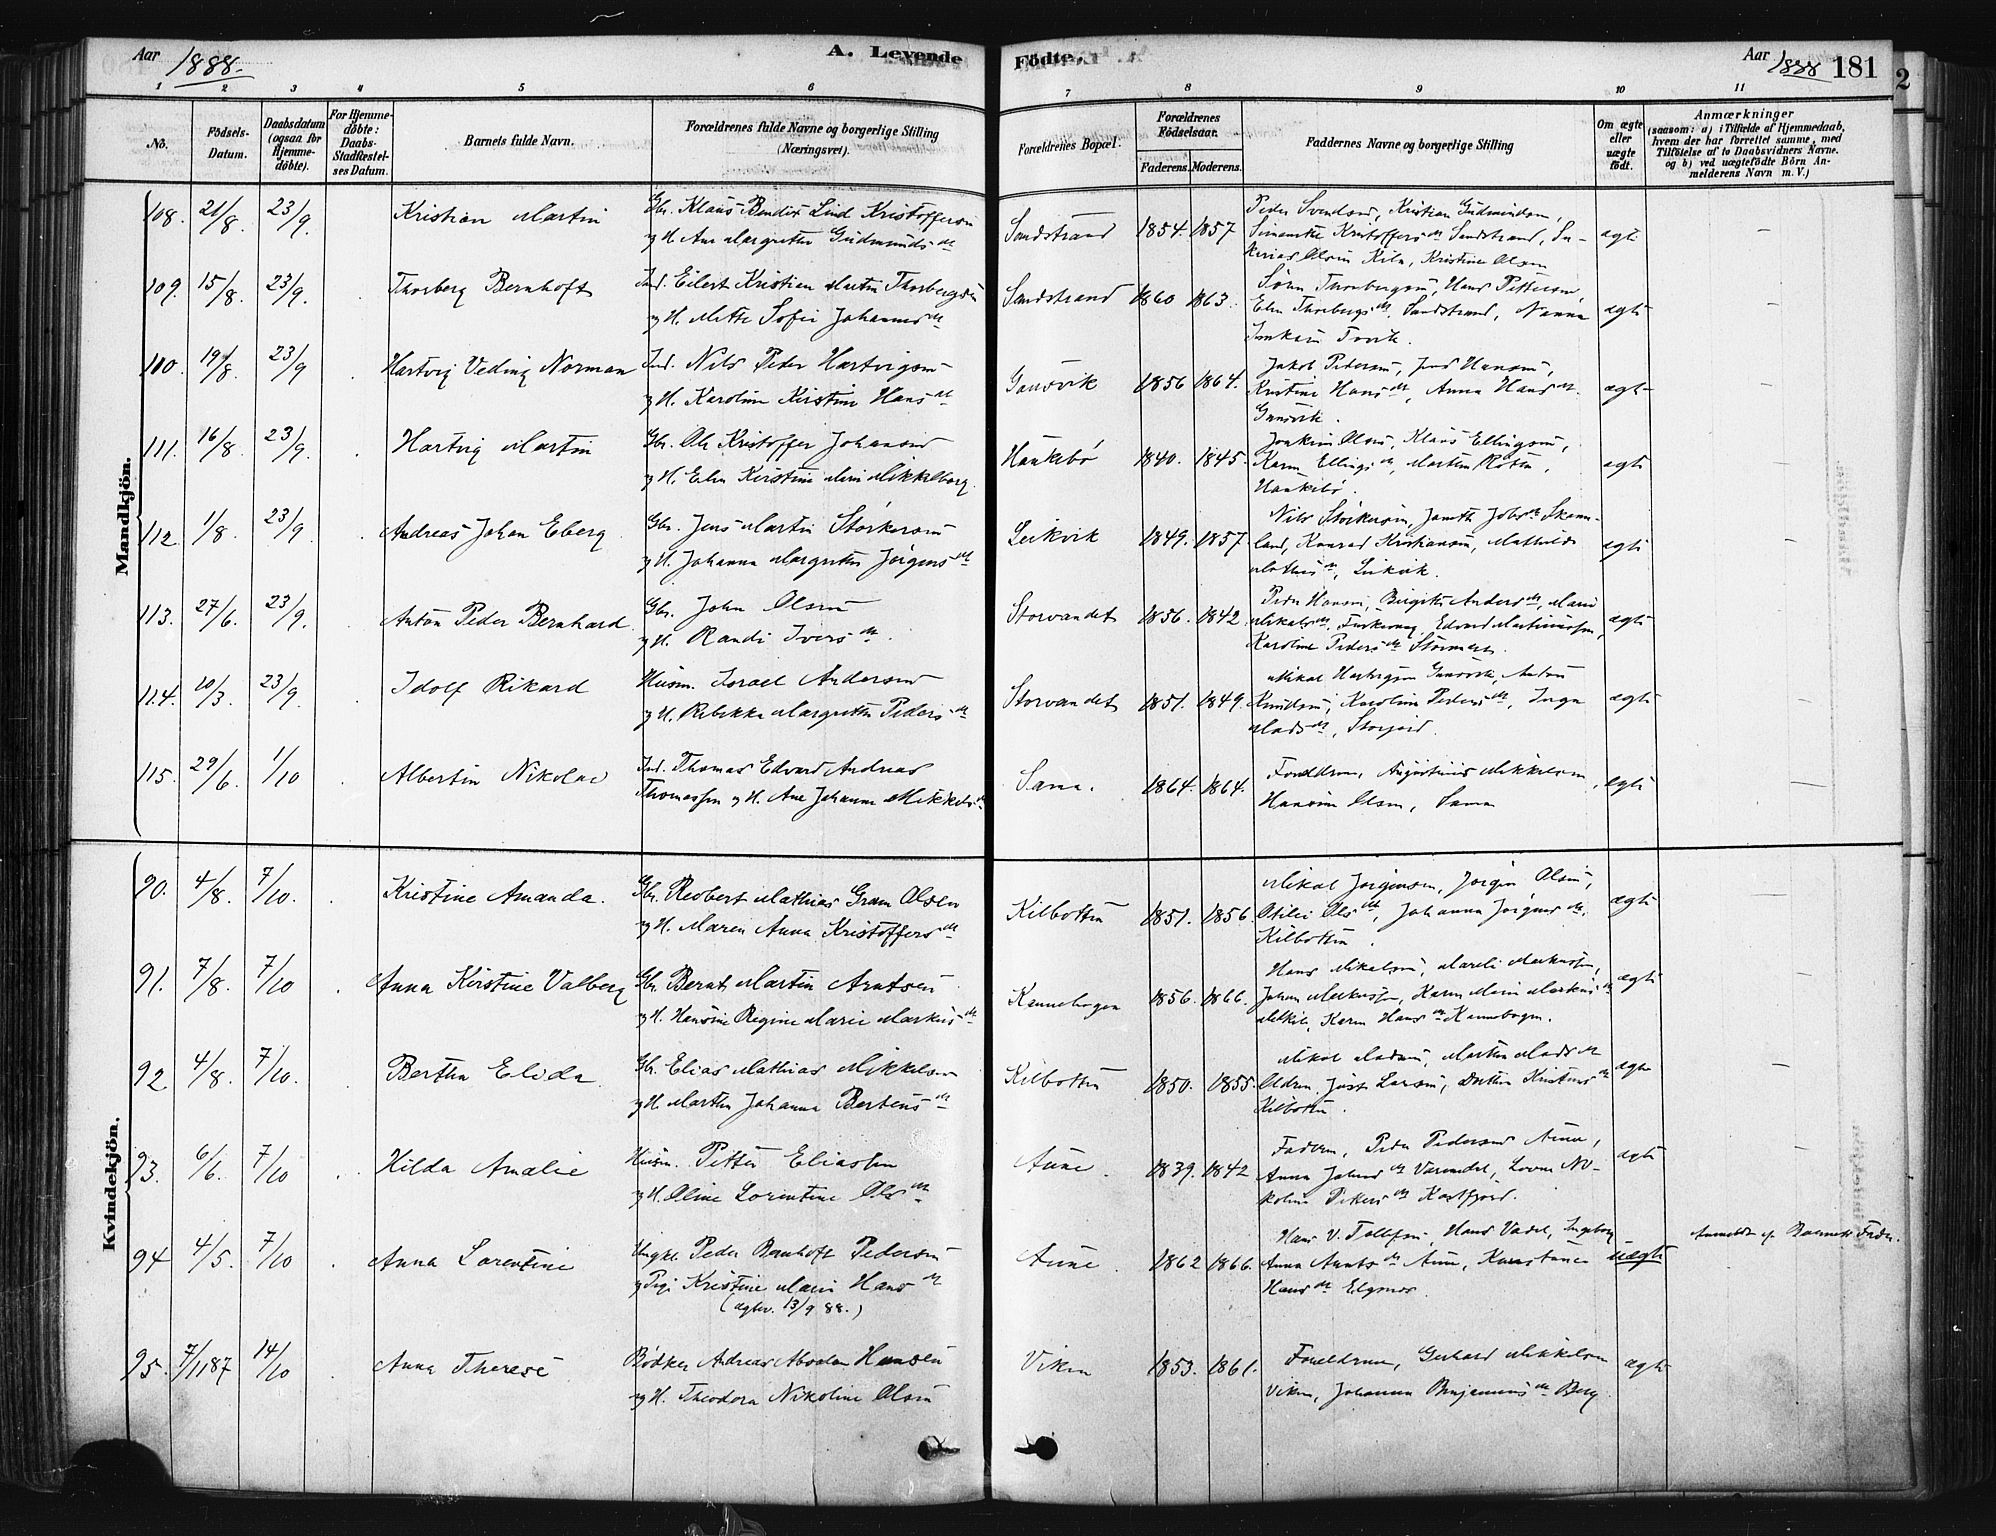 Aar 1888. A. Levende Födte. Aar 1888 181
2
1 2 3 4 5 6 7 8 9 10 11
No.
Födsels-
Datum.
Daabsdatum
(ogsaa for
Hjemme-
döbte).
For Hjemme-
döbte:
Daabs-
Stadfæstel-
ses Datum.
Barnets fulde Navn.
Forældrenes fulde Navne og borgerlige Stilling
(Næringsvei).
Forældrenes Bopæl.
Forældrenes
Födselsaar.
Faderens. Moderens.
Faddernes Navne og borgerlige Stilling
Om ægte
eller
uægte
födt.
Anmærkninger
(saasom: a) i Tilfælde af Hjemmedaab,
hvem der har forrettet samme, med
Tilföielse af to Daabsvidners Navne.
og b) ved uægtefödte Börn An-
melderens Navn m. V.)
Mandkjön.
108. 21/8. 23/9. Kristian Martin Gbr. Klaus Bendix Lind Kristoffersen
og H. Ane Margrethe Gudmunds dt
Sandstrand 1854. 1857 Peder Svendsen, Kristian Gudmundsen,
Kristoffers dt Sandstrand,
Olsen Kiln, Kristine Olsen
ægte
109. 15/8. 23/9. Thorberg Bernhoft Ind. Eilert Kristian Martin Thorbergsen
og H. Mette Sofie Johannes dt
Sandstrand 1860 1863. Thorbergsen, Hans Pettersen,
Elen Thorbergs dt, Sandstrand, Nanna
ægte
110. 19/8. 23/9 Hartvig Veding Norman Ind. Nils Peder Hartvigsen
og H. Karoline Kirstine Hans dt
Gausvik 1856 1864. Jakob Pedersen, Jens Hansen,
Kristine Hans dt, Anna Hans dt.
Gausvik.
ægte
111. 16/8. 23/9. Hartvig Martin Gbr. Ole Kristoffer Johansen
og H. Elen Kirstine Marie Mikkelborg
Haukebø 1840. 1845. Joakim Olsen, Klaus Ellingsen,
Karen Ellings dt, Marten
Haukebø.
ægte
112. 1/8. 23/9. Andreas Johan Eberg Gbr. Jens Martin Størkersen
og H. Johanna Margrethe Jørgens dt
Leikvik 1849. 1857. Nils Størkersen, Skaan-
land, Konrad Kristiansen, Mathilde
Mathias dt, Leikvik.
ægte
113. 27/6. 23/9. Anton Peder Bernhard Gbr. John Olsen
og H. Randi Ivers dt.
Storvandet 1856. 1842. Peder Hansen, Birgitte Anders dt, Marie
Mikals dt, Edvard Martinussen,
Karoline Peders dt
ægte
114. 10/3. 23/9 Idolf Rikard Husm. Israel Andersen
og H. Rebekka Margrethe Peders dt
Storvandet 1851. 1849. Mikal Hartvigsen Gausvik, Anton
Knudsen, Karoline Peders dt, Inga
Mads dt, Storjord.
ægte
115. 29/6. 1/10 Albertin Nikolai Ind. Thomas Edvard Andreas
Thomassen og H. Ane Johanna Mikkels dt
Sama. 1864. 1864. Forældrene, Augustinus Mikkelsen,
Hansine Olsen, Sama
ægte
Kvindekjön.
90. 4/8. 7/10. Kristine Amanda. Gbr. Redbert Mathias Gram Olsen
og H. Maren Anna Kristoffers dt
Kilbotten 1851. 1856. Mikal Jørgensen, Jørgen Olsen,
Otilie Ols dt, Johanna Jørgens dt,
Kilbotten.
ægte
91. 7/8. 7/10 Anna Kirstine Valberg Gbr. Bernt Martin Arntsen
og H. Hansine Regine Marie Markus dt
Kannebogen 1856. 1866. Hans Mikalsen, Mareli Markussen,
Johan Markussen, Karen Marie Markus dt
Karen Hans dt Kannebogen.
ægte
92 4/8. 7/10. Bertha Elida Gbr. Elias Mathias Mikkelsen
og H. Martha Johanna Bertheus dt
Kilbotten 1850. 1855. Mikal Madsen, Marthe Mads dt
Aldrin, Just Larsen, Dorthea Kristens dt
Kilbotten.
ægte
93. 6/6. 7/10 Hilda Amalie Husm. Petter Eliassen
og H. Oline Lorentine Ols dt
Aune. 1839. 1842 Faderen, Peder Pedersen Aune,
Anna Johns dt Lovise Ni-
koline Pekers dt Kastfjord.
ægte
94 4/5. 7/10 Anna Lorentine Ungk. Peder Bernhoft Pedersen
og Pige Kristine Marie Hans dt
(ægtev. 13/9 88.)
Aune. 1862 1866. Hans V. Tollefsen, Hans Vadel, Ingeborg
Anna Arnts dt Aune, Konstance
Hans dt Elgsnes.
uægte Anmeldt af Barnets Fader.
95. 7/11 87 14/10 Anna Therese Bødker Andreas Hansen
og H. Theodora Nikoline Olsen
Viken 1853. 1861. Forældrene, Gerhard Mikkelsen
Viken, Johanna Benjamins dt Berg.
ægte